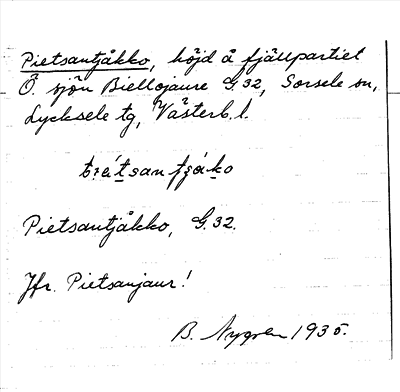 Pietsantjåkko, höjd å fjällpartiet
Ö. sjön Biellojaure G.32, Sorsele sn,
Lycksele tg, Västerb. l.
Pietsantjåkko, G.32.
Jfr. Pietsanjaur!
B. Nygren 1935.